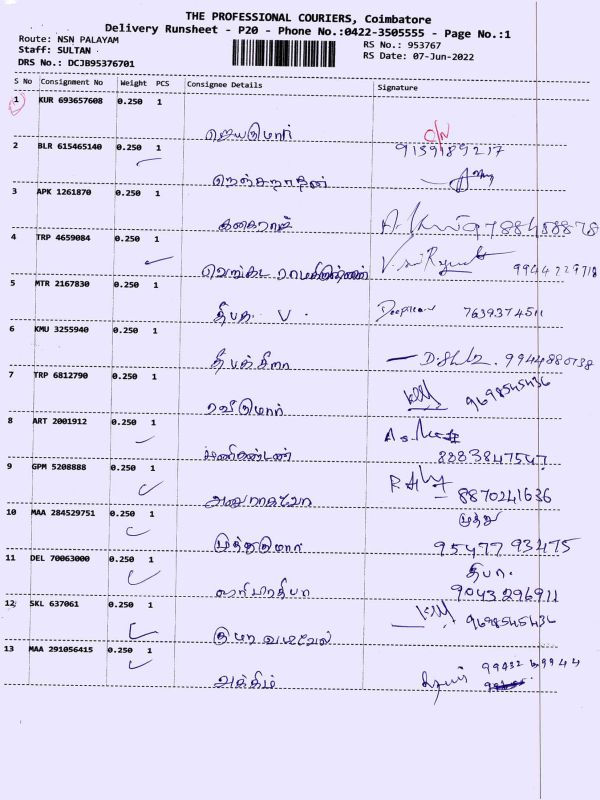 THE PROFESSIONAL COURIERS, Coimbatore
Delivery Runsheet - P20 - Phone No.:0422-3505555 - Page No.:1
Route: NSN PALAYAM
RS No.: 953767
Staff: SULTAN
RS Date: 07-Jun-2022
DRS No.: DCJB95376701
S No Consignment No Weight PCS Consignee Details Signature
1 KUR 693657608 0.250 1
ஜெயகுமார் C/N
9159189217
2 BLR 615465140 0.250 1
3 APK 1261870 0.250 1
கனகராஜ் 9788458878
4 TRP 4659084 0.250 1
வெங்கட ராமகிருஷ்ணன் 9944229718
5 MTR 2167830 0.250 1
தீபக். V. 7639374511
6 KMU 3255940 0.250 1
9944880738
7 TRP 6812790 0.250 1
ரவிகுமார் 9698545436
8 ART 2001912 0.250 1
மணிகண்டன் 8883847547
9 GPM 5208888 0.250 1
8870241636
10 MAA 284529751 0.250 1
முத்து
முத்துகுமார் 95477 93475
11 DEL 70063000 0.250 1
தீபா.
ஹரிபிரதீபா 9043296911
12 SKL 637061 0.250 1
குமரவடிவேல் 9698545436
13 MAA 291056415 0.250 1
99432 69944